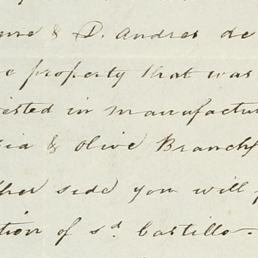 & D. Andres de
property that was
in manufactur
& Olive Branch
side you will
tion of s^d Castillo.